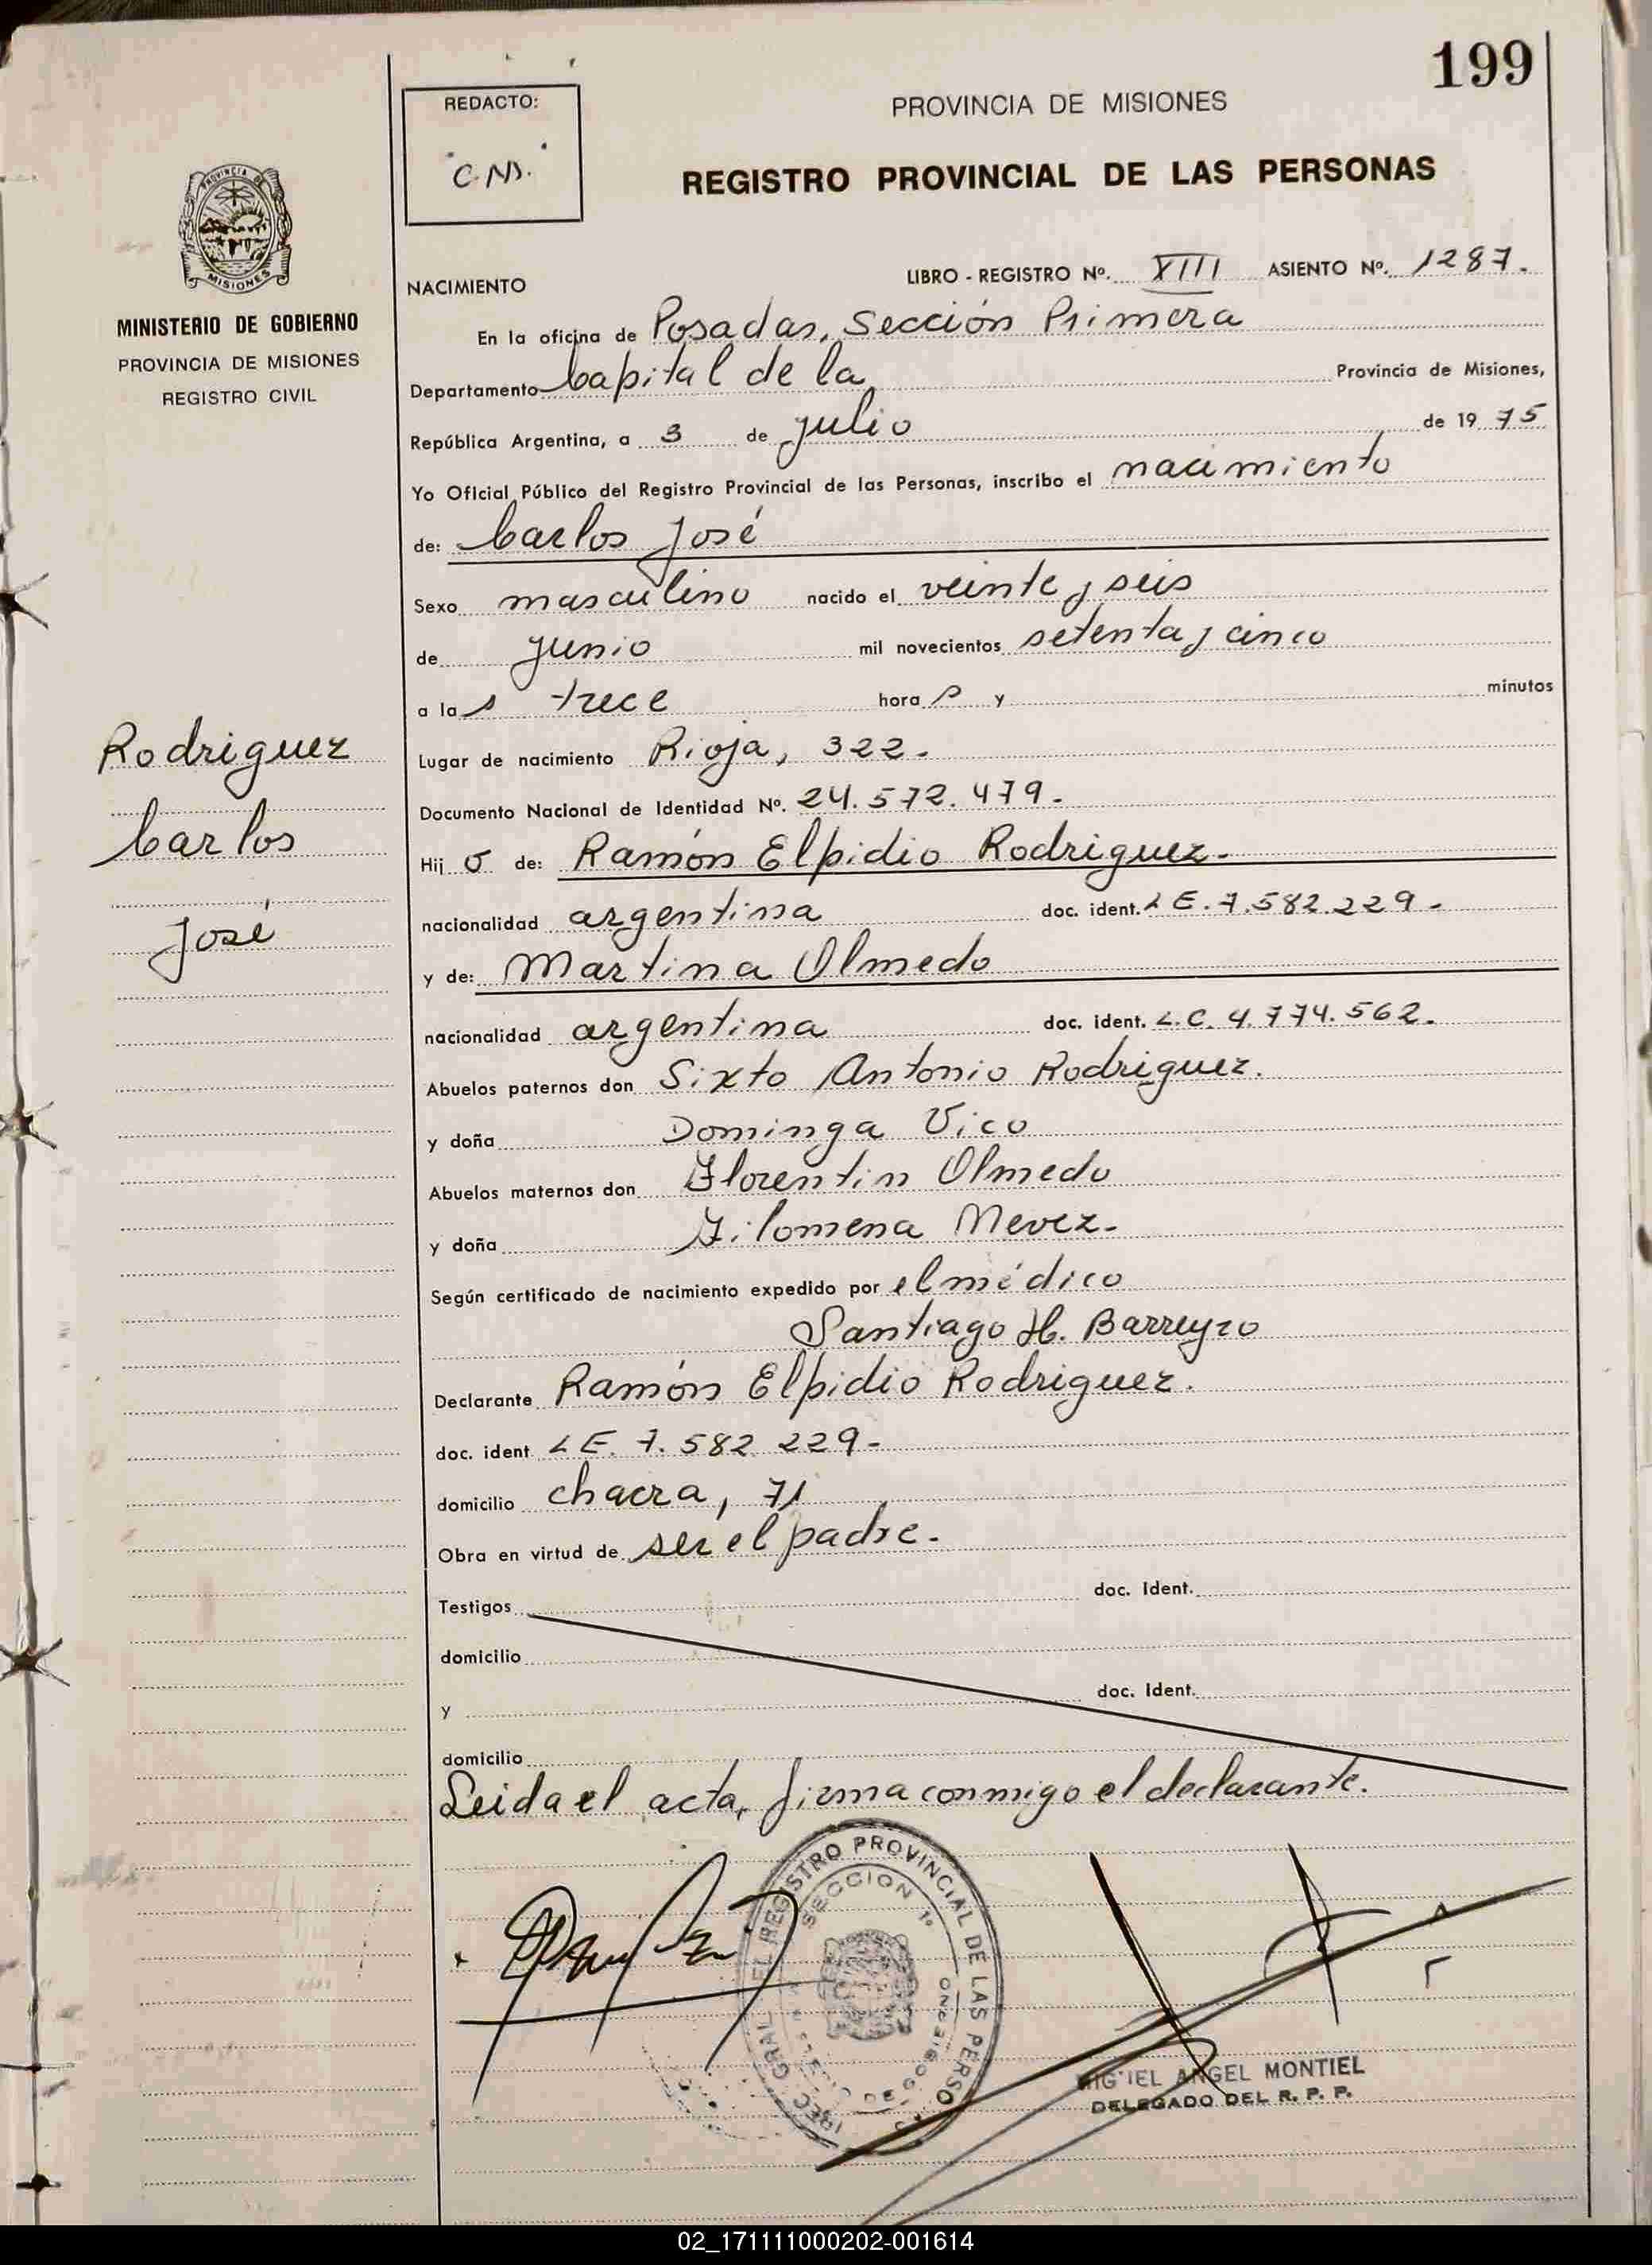 199
REDACTO:
PROVINCIA DE MISIONES
"C.N."
REGISTRO PROVINCIAL DE LAS PERSONAS
PROVINCIA DE
MISIONES
MINISTERIO DE GOBIERNO
PROVINCIA DE MISIONES
REGISTRO CIVIL
NACIMIENTO LIBRO - REGISTRO Nº. XIII ASIENTO Nº. 1287.
En la oficina de Posadas, Sección Primera
Departamento Capital de la Provincia de Misiones,
República Argentina, a 3 de julio de 1975
Yo Oficial Público del Registro Provincial de las Personas, inscribo el nacimiento
de: Carlos José
Sexo masculino nacido el veinte y seis
de junio mil novecientos setenta y cinco
a las trece horas y minutos
Lugar de nacimiento Rioja, 322.
Documento Nacional de Identidad Nº. 24.572.479.
Hijo de: Ramón Elpidio Rodriguez.
nacionalidad argentina doc. ident. L E. 7.582.229.
y de: Martina Olmedo
nacionalidad argentina doc. ident. L.C. 4.774.562.
Abuelos paternos don Sixto Antonio Rodriguez.
y doña Dominga Vico
Abuelos maternos don Florentin Olmedo
y doña Filomena Mevez.
Según certificado de nacimiento expedido por el médico
Santiago H. Barreyro
Declarante Ramón Elpidio Rodriguez.
doc. ident LE. 7.582 229-
domicilio chacra, 71
Obra en virtud de ser el padre.
Testigos doc. Ident.
domicilio
y doc. Ident.
domicilio
Leida el acta, firma conmigo el declarante.
Rodriguez
Carlos
José
REGISTRO PROVINCIAL DE LAS PERSO
SECCION 1º
GRAL
MIGUEL ANGEL MONTIEL
DELEGADO DEL R. P. P.
02_171111000202-001614